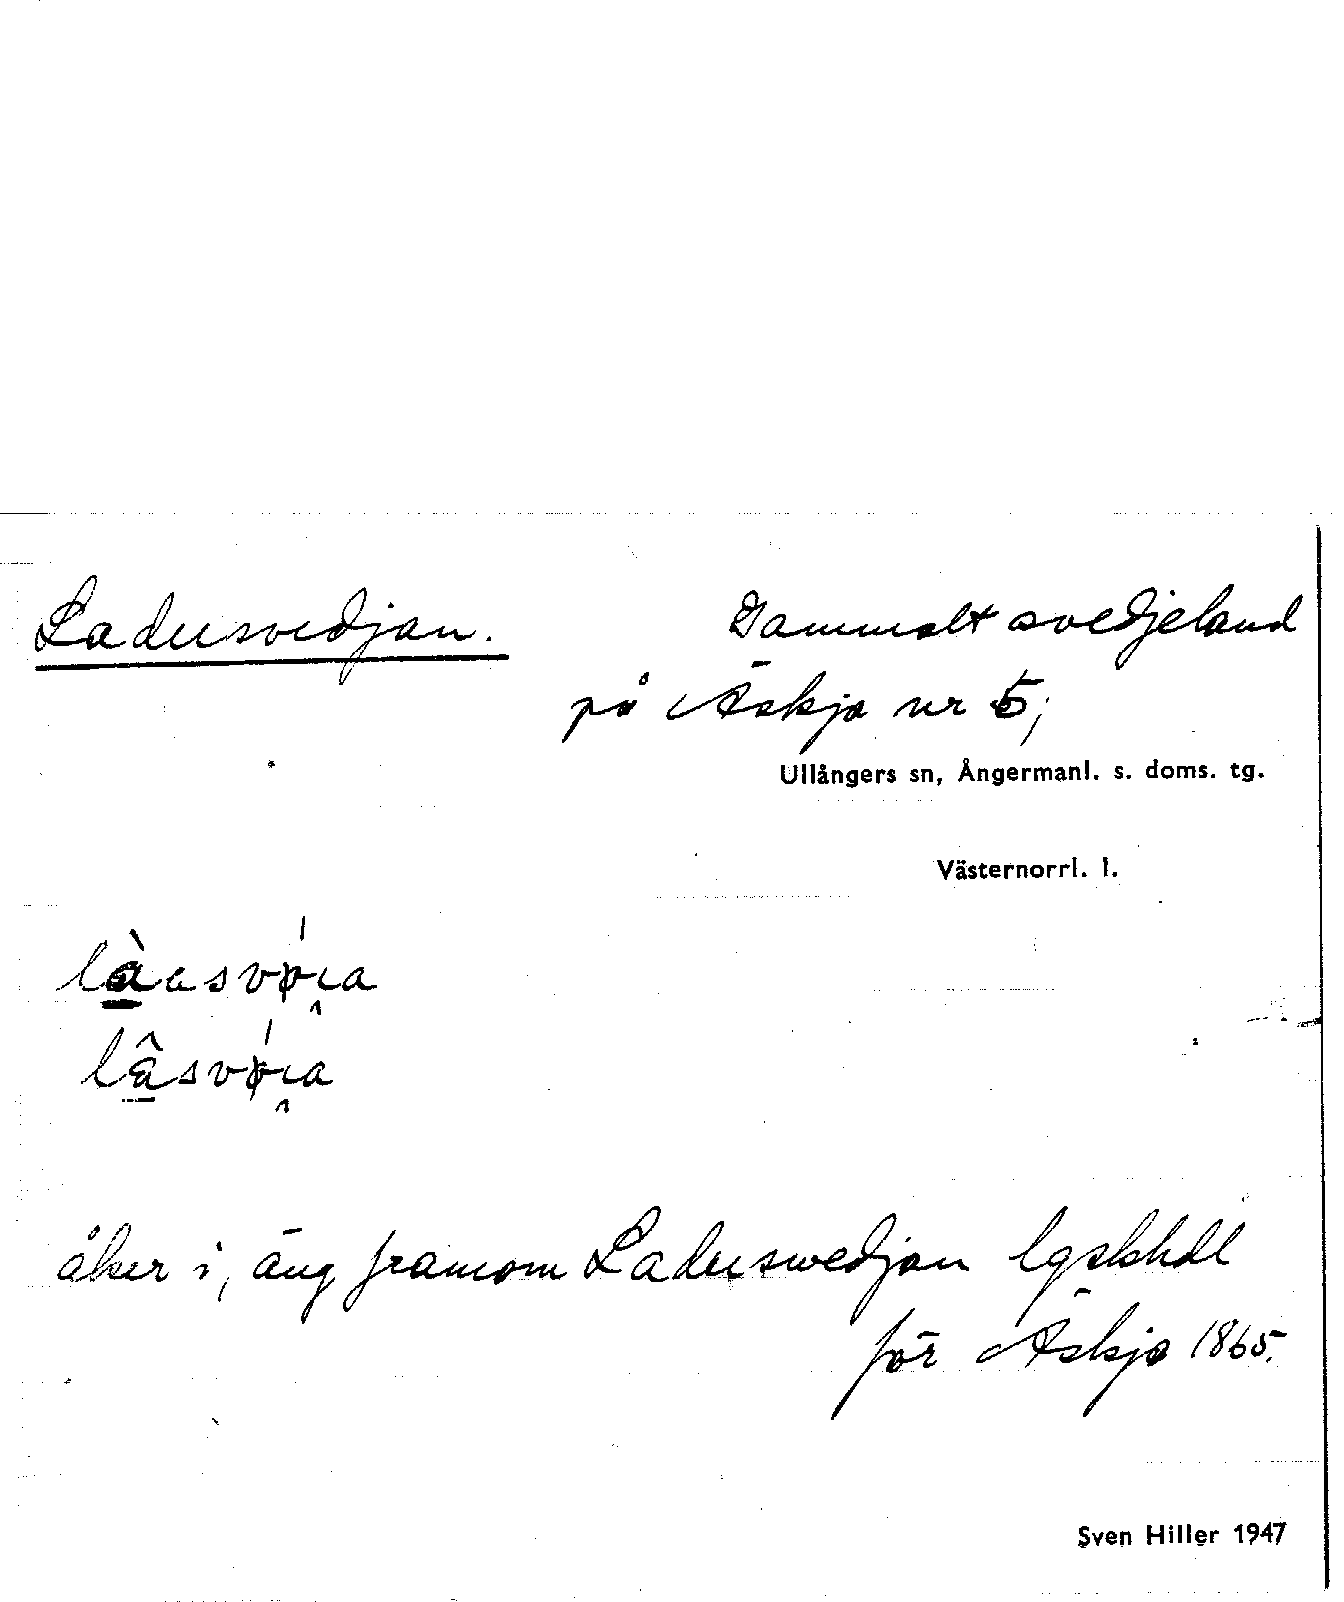 Ladusvedjan. Gammalt svedjeland
på Äskja nr 5;
Ullångers sn, Ångermanl. s. doms. tg.
Västernorrl. l.
åker i, äng framom Laduswedjan lgskhdl
för Äskja 1865.
Sven Hiller 1947